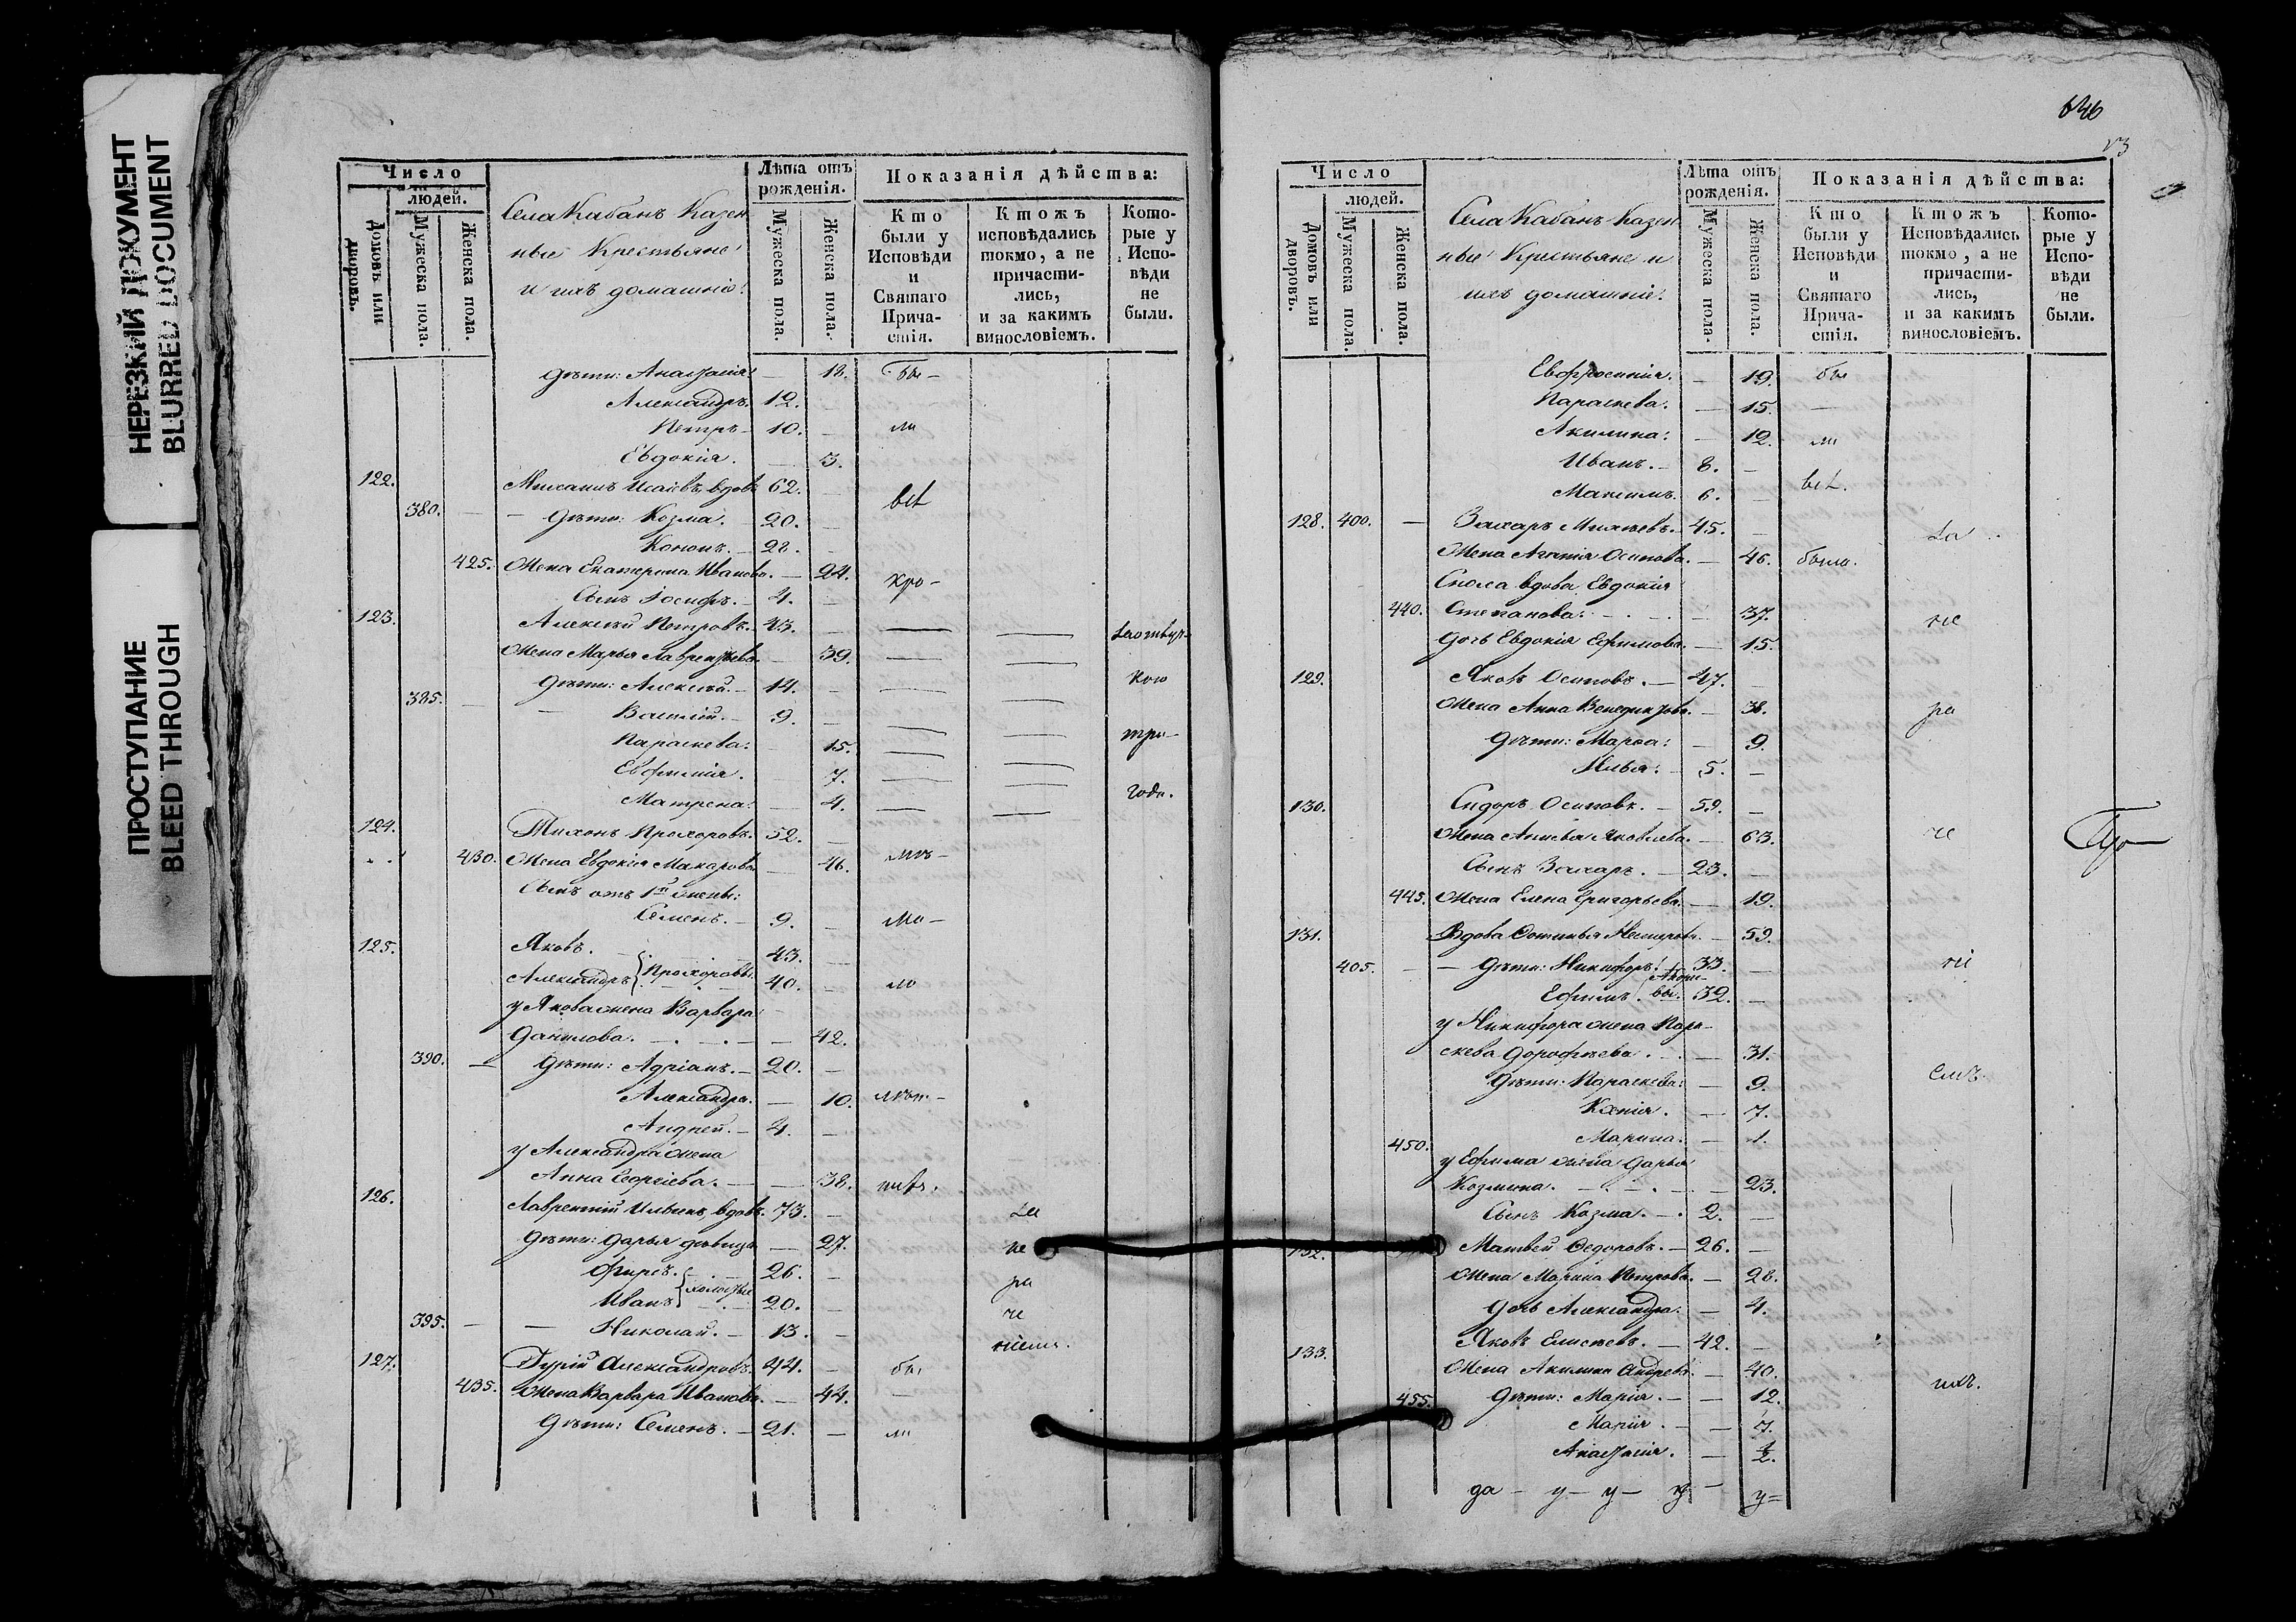 НЕРЕЗКИЙ ДОКУМЕНТ
BLURRED DOCUMENT
ПРОСТУПАНИЕ
BLEED THROUGH
Число
людей.
Домовъ или дворовъ.
Мужеска пола.
Женска пола.
Села Кабанъ Казен
ные Крестьяне
и ихъ домашніе:
Лѣта отъ рожденія.
Мужеска пола.
Женска пола.
Показанія дѣйства:
Кто были у Исповѣди и Святаго Прича- стія.
Ктожъ исповѣдались токмо, а не причасти- лись, и за какимъ винословіемъ.
Кото- рые у Испо- вѣди не были.
дѣти: Анастасія. — 18. бы-
Александръ. 12. —
Петръ. 10. — ли
Евдокія. — 3.
122. Исаевъ, вдовъ 62. — всѣ
380. — дѣти: Козма. — 20. —
Кононъ. — 22. —
425. Жена Екатерина Иванова. — 24. кро-
Сынъ Іосифъ. — 4. —
123. Алексѣй Петровъ. 43. — — —
Жена Марья Лаврентьева. — 39. — —
дѣти: Алексѣй. 14. — — — кою
385. — Василій. — 9. — —
Параскева: — 15. — — три-
Евфимія. — 7. — —
Матрена: — 4. — — года.
124. Тихонъ Прохоровъ. 52. —
430. Жена Евдокія Макарова — 46. мъ-
Сынъ отъ 1й жены:
Семенъ. — 9. — ма-
125. Яковъ. 43. —
Александръ Прохоровы. 40. — ло
у Якова жена Варвара
Данилова. — 42.
390. — дѣти: Адріанъ. — 20. —
Александра. — 10. лѣт-
Андрей. — 4. —
у Александра жена
Анна Георгіева. — 38. нихъ.
126. Лаврентій Ильинъ, вдовъ. 73. — за
дѣти: Дарья дѣвица — 27. не
Фирсъ. 26. — ра
Иванъ холостые 20. — че
395. — — Николай. — 13. — ніемъ.
127. Гурій Александровъ. 44. — бы
435. Жена Варвара Иванова. — 44. —
дѣти: Семенъ. — 21. — ли
646
Число
людей.
Домовъ или дворовъ.
Мужеска пола.
Женска пола.
Села Кабанъ Казен
ные Крестьяне и
ихъ домашніе:
Лѣта отъ рожденія.
Мужеска пола.
Женска пола.
Показанія дѣйства:
Кто были у Исповѣди и Святаго Прича- стія.
Ктожъ Исповѣдались токмо, а не причасти- лись, и за какимъ винословіемъ.
Кото- рые у Испо- вѣди не были.
Евфросинія. — 19. бы
Параскева. — 15. —
Акилина: — 12. ли
Иванъ. — 8. —
Максимъ. 6. — всѣ.
128. 400. — Захаръ 45. — за
Жена Агапія Осипова. — 46. была.
Сноха вдова Евдокія
440. Степанова: — 37. не
дочь Евдокія Ефимова. — 15.
129. Яковъ Осиповъ. — 47. —
Жена Анна Венедиктова. — 38. ра
дѣти: Марѳа: — 9.
Илья: 5. —
130. Сидоръ Осиповъ. — 59. —
Жена Анисья Яковлева. — 63. че
Сынъ Захаръ. — 23. —
445. Жена Елена Григорьева. — 19.
131. Вдова Фотинья — 59.
405. — — дѣти: Никифоръ. 33. — ні
Ефимъ. 32. —
у Никифора жена Пара-
скева Дорофѣева. — 31.
дѣти: Параскева: — 9. емъ.
Ксенія. — 7.
450. Марина. — 1.
у Ефима жена Дарья
Козмина. — 23.
Сынъ Козма. — 2. —
132. Матвей Ѳедоровъ. — 26. —
Жена Марина Петрова. — 28.
дочь Александра. — 4.
133. Яковъ Елисѣевъ. — 42. —
Жена Акилина Андреева. — 40.
455. дѣти: Марія. — 12. ихъ.
Марія. — 7.
Анастасія. — ½.